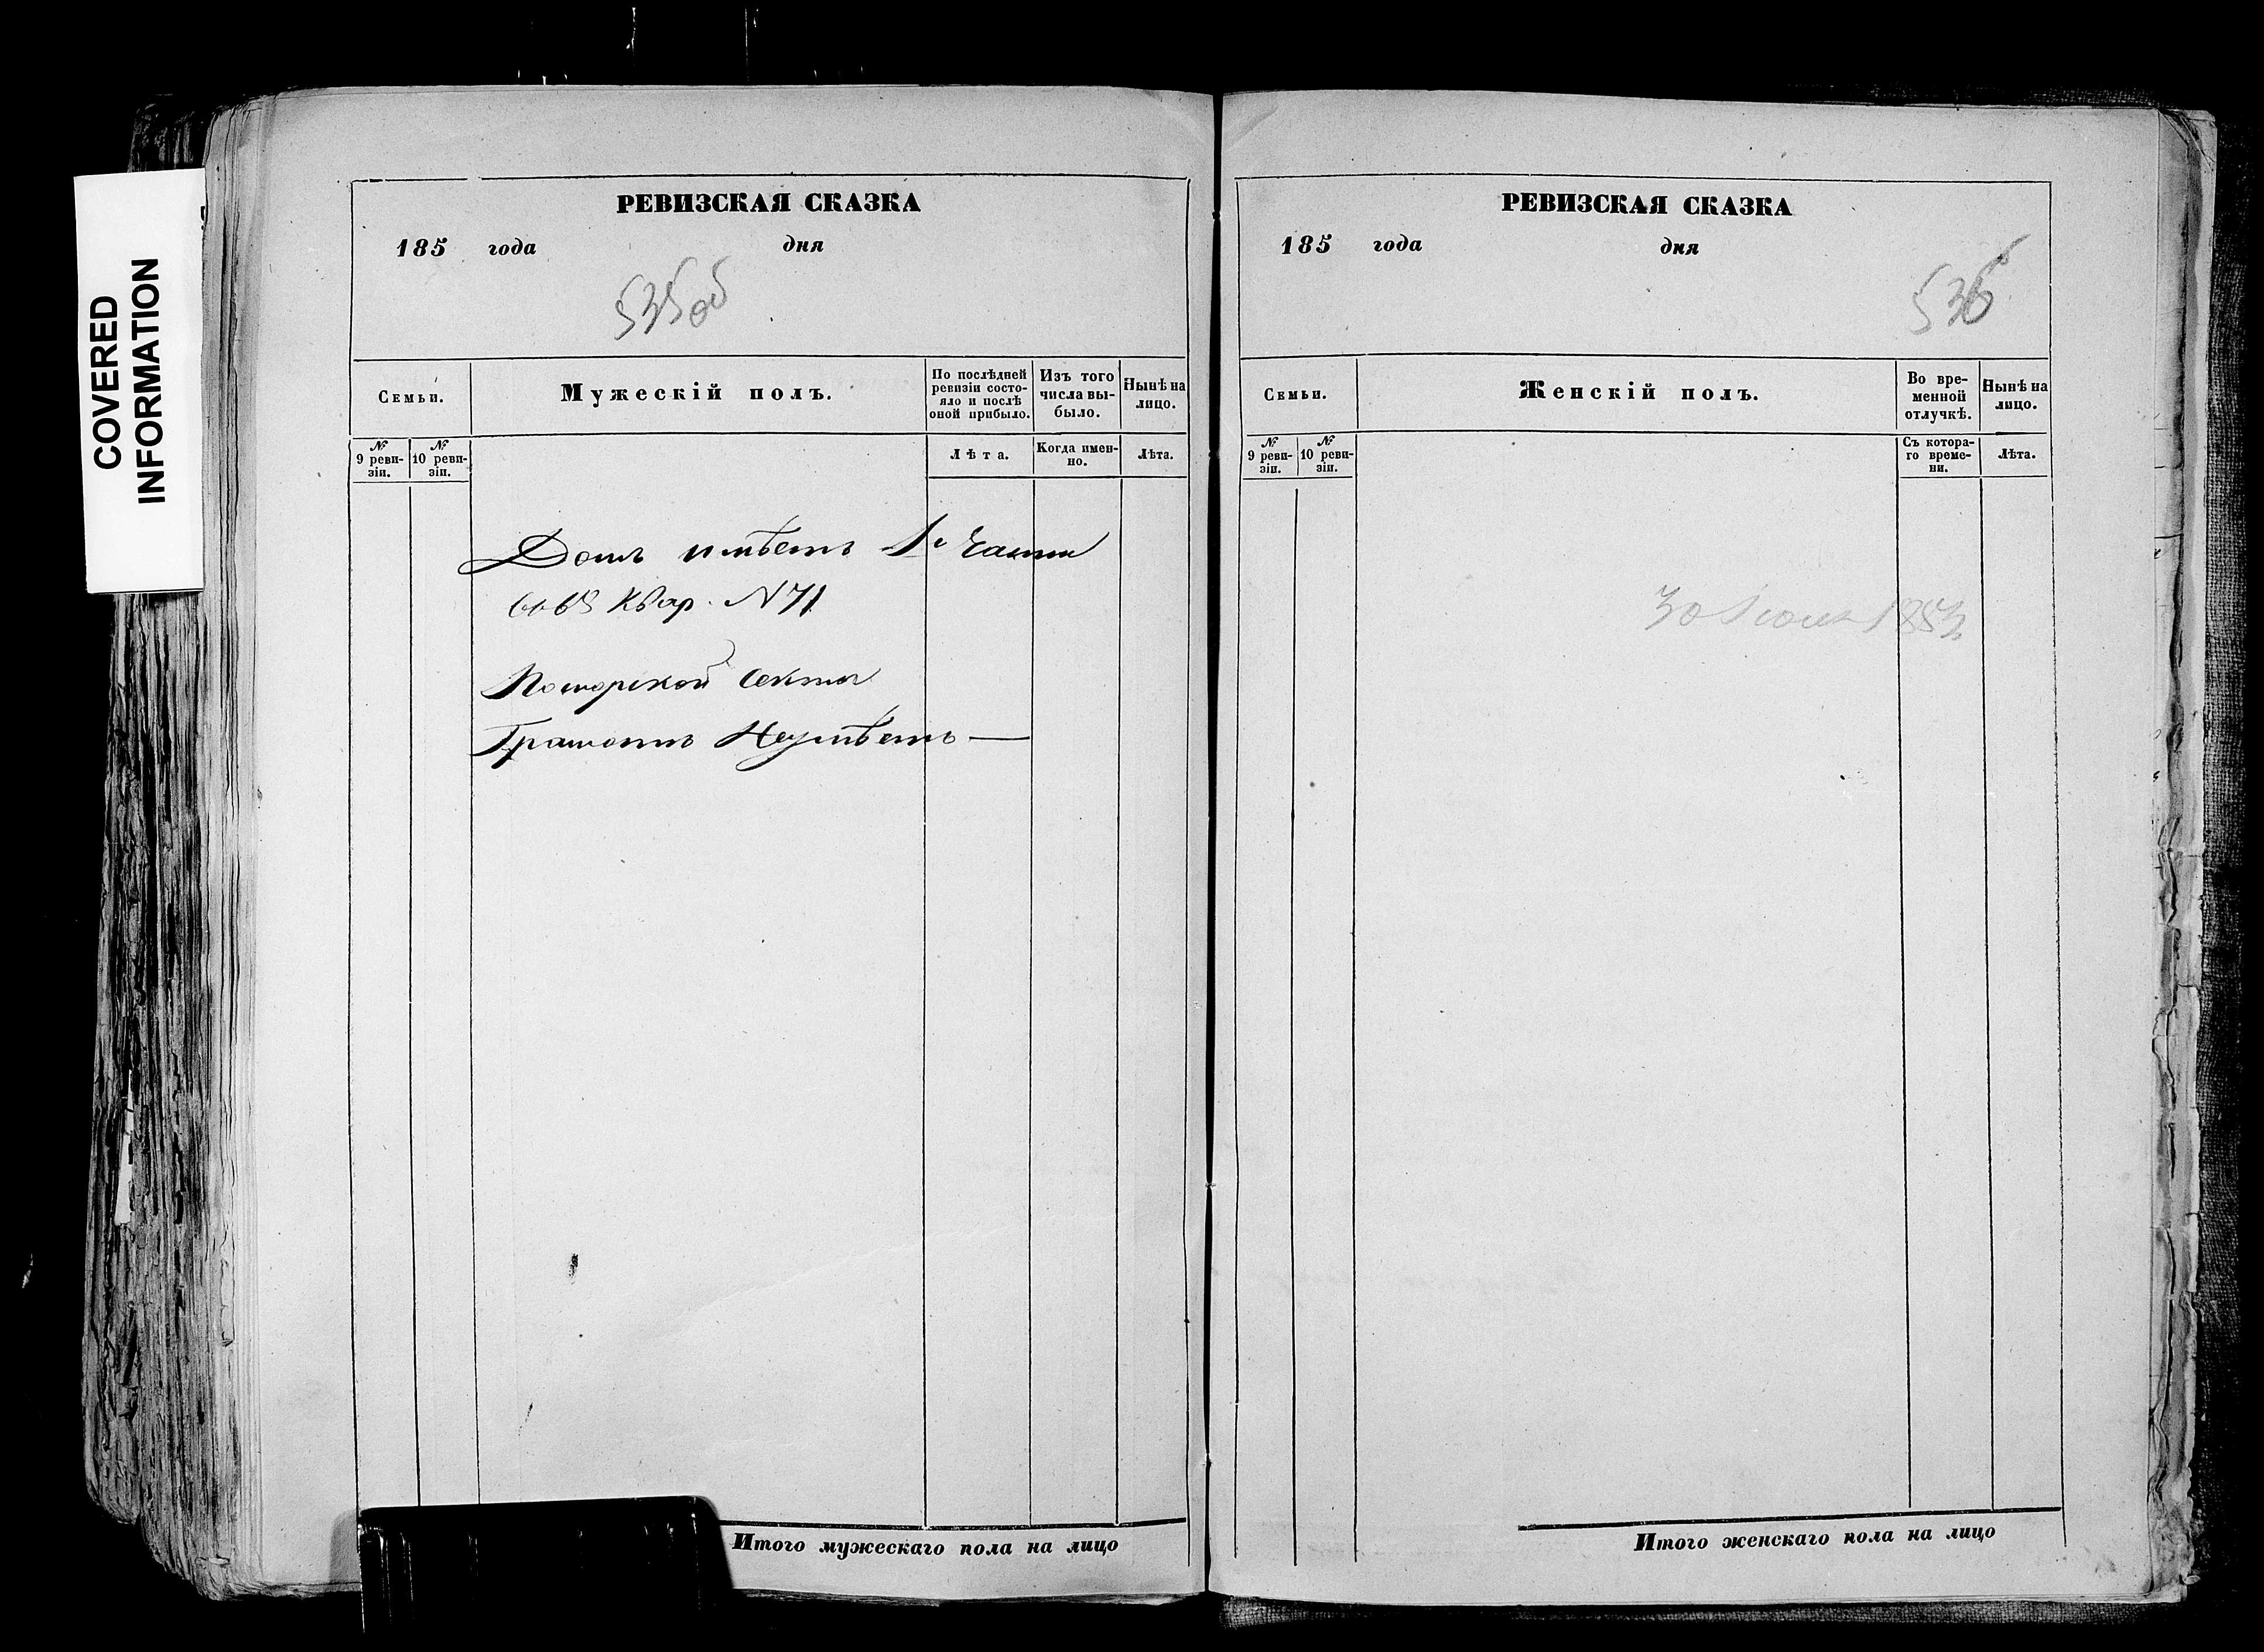 COVERED
INFORMATION
РЕВИЗСКАЯ СКАЗКА
185 года дня
535об
Семьи.
Мужескій полъ.
По послѣдней ревизіи состояло и послѣ оной прибыло.
Изъ того числа выбыло.
Нынѣ на лицо.
№ 9 ревизіи.
№ 10 ревизіи.
Лѣта.
Когда именно.
Лѣта.
Домъ имѣетъ 1й Части
Квар. N 71
Поморской Секты
Грамотѣ Неумѣетъ —
Итого мужескаго пола на лицо
РЕВИЗСКАЯ СКАЗКА
185 года дня
536
Семьи.
Женскій полъ.
Во временной отлучкѣ.
Нынѣ на лицо.
№ 9 ревизіи.
№ 10 ревизіи.
Съ котораго времени.
Лѣта.
30 1853
Итого женскаго пола на лицо